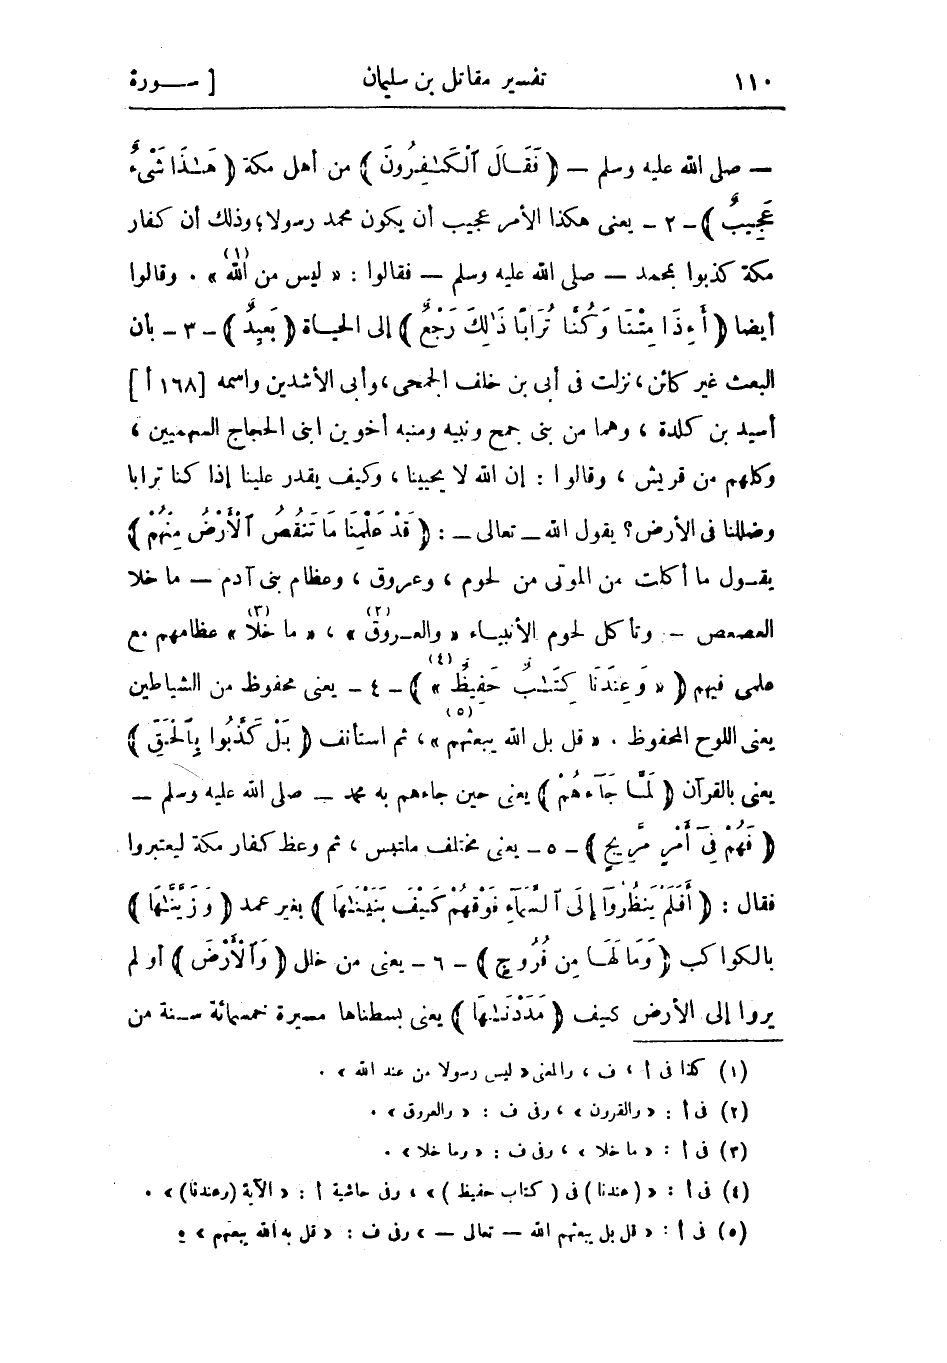 ١١٠ تفسير مقاتل بن سليمان [ سـورة
— صلى الله عليه وسلم — ﴿ فَقَالَ ٱلْكَـٰفِرُونَ ﴾ من أهل مكة ﴿ هَـٰذَا شَىْءٌ
عَجِيبٌ ﴾ - ٢ - يعنى هكذا الأمر عجيب أن يكون محمد رسولا؛ وذلك أن كفار
مكة كذبوا بمحمد — صلى الله عليه وسلم — فقالوا : « ليس من الله (١) » . وقالوا
أيضا ﴿ أَءِذَا مِتْنَا وَكُنَّا تُرَابًا ذَٰلِكَ رَجْعٌ ﴾ إلى الحياة ﴿ بَعِيدٌ ﴾ - ٣ - بأن
البعث غير كائن ، نزلت فى أبى بن خلف الجمحى ، وأبى الأشدين واسمه [ ١٦٨ أ ]
أسيد بن كلدة ، وهما من بنى جمح ونبيه ومنبه أخوين ابنى الحجاج السهميين ،
وكلهم من قريش ، وقالوا : إن الله لا يحيينا ، وكيف يقدر علينا إذا كنا ترابا
وضللنا فى الأرض ؟ يقول الله — تعالى — : ﴿ قَدْ عَلِمْنَا مَا تَنقُصُ ٱلْأَرْضُ مِنْهُمْ ﴾
يقـول ما أكلت من الموتى من لحوم ، وعروق ، وعظام بنى آدم — ما خلا
العصعص — وتأكل لحوم الأنبيـاء « والعـروق (٢) » ، « ما خلا (٣) » عظامهم مع
علمى فيهم ﴿ « وَعِندَنَا كِتَـٰبٌ حَفِيظٌ (٤) » ﴾ - ٤ - يعنى محفوظ من الشياطين
يعنى اللوح المحفوظ . « قل بل الله يبعثهم (٥) » ، ثم استأنف ﴿ بَلْ كَذَّبُوا بِٱلْحَقِّ ﴾
يعنى بالقرآن ﴿ لَمَّا جَآءَهُمْ ﴾ يعنى حين جاءهم به محمد — صلى الله عليه وسلم —
﴿ فَهُمْ فِىٓ أَمْرٍ مَّرِيجٍ ﴾ - ٥ - يعنى مختلف ملتبس ، ثم وعظ كفار مكة ليعتبروا
فقال : ﴿ أَفَلَمْ يَنظُرُوٓا إِلَى ٱلسَّمَآءِ فَوْقَهُمْ كَيْفَ بَنَيْنَـٰهَا ﴾ بغير عمد ﴿ وَزَيَّنَّـٰهَا ﴾
بالكواكب ﴿ وَمَا لَهَـا مِن فُرُوجٍ ﴾ - ٦ - يعنى من خلل ﴿ وَٱلْأَرْضَ ﴾ أو لم
يروا إلى الأرض كيف ﴿ مَدَدْنَـٰهَا ﴾ يعنى بسطناها مسيرة خمسمائة سـنة من
(١) كذا فى أ ، ف ، والمعنى « ليس رسولا من عند الله » .
(٢) فى أ : « والقرون » ، وفى ف : « والعروق » .
(٣) فى أ : « ما خلا » ، وفى ف : « وما خلا » .
(٤) فى أ : « (عندنا) فى ( كتاب حفيظ ) » ، وفى حاشية أ : « الآية (وعندنا) » .
(٥) فى أ : « قل بل يبعثهم الله — تعالى — » وفى ف : « قل به الله يبعثهم » .